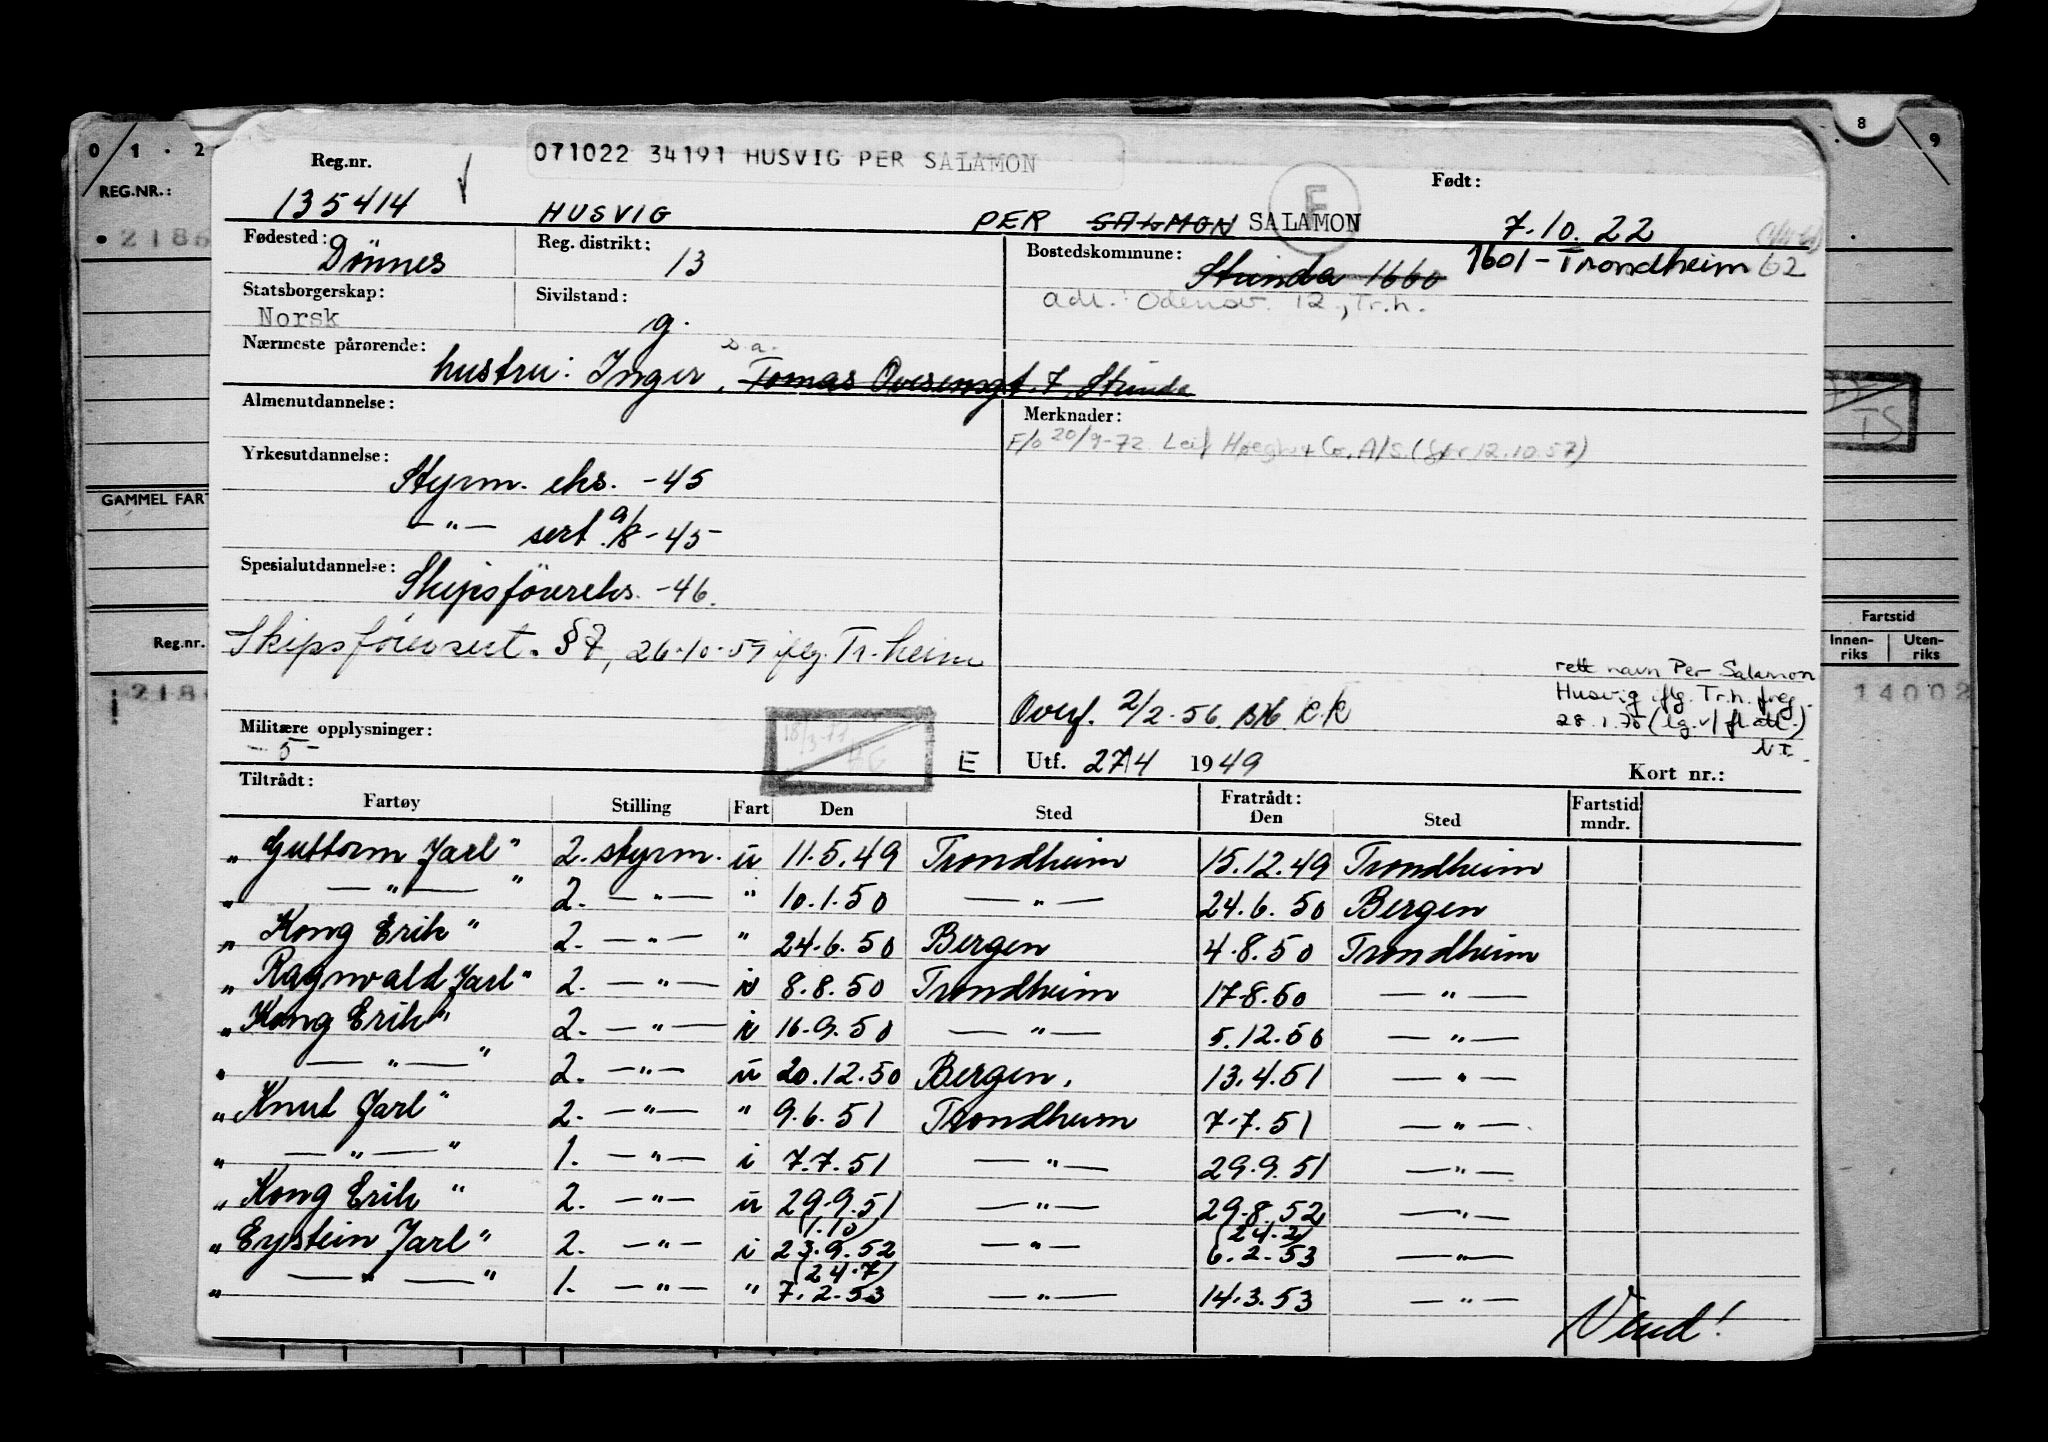 0 / 1 . 2
8
9
REG.NR.:
• 2186
071022 34191 HUSVIG PER SALAMON
E
Reg.nr.
135414
HUSVIG
PER SALMON SALAMON
Født:
7.10.22
Fødested:
Dönnes
Reg. distrikt:
13
Bostedskommune:
Strinda 1660
1601-Trondheim 62
adr.: Odensv. 12, Tr.h.
Statsborgerskap:
Norsk
Sivilstand:
g.
Nærmeste pårørende:
s.a.
hustru: Inger, Tomas Ovesensgt. 7, Strinda
Almenutdannelse:
Merknader:
F/b 20/9-72 Leif Høegh & Co. A/S (før 12.10.57)
TS
Yrkesutdannelse:
Styrm. eks. -45
— " — sert. 9/8-45-
GAMMEL FART
Spesialutdannelse:
Skipsförereks. -46.
Skipsförersert. §7, 26-10-57 iflg. Tr.heim
Fartstid
Innen-riks
Uten-riks
14002
Reg.nr.
218
rett navn Per Salamon
Husvig iflg. Tr.h. freg.
28.1.70
NI.
Overf. 2/2-56.
Militære opplysninger:
-5-
E
Utf. 27/4 1949
Kort nr.:
Tiltrådt:
Fratrådt:
Fartøy Stilling Fart Den Sted Den Sted Fartstid mndr.
"Guttorm Jarl" 2. styrm. u 11.5.49 Trondheim 15.12.49 Trondheim
" — " — " 2. — " — " 10.1.50 — " — 24.6.50 Bergen
"Kong Erik" 2. — " — " 24.6.50 Bergen 4.8.50 Trondheim
"Ragnvald Jarl" 2. — " — i 8.8.50 Trondheim 17.8.50 — " —
"Kong Erik" 2. — " — i 16.9.50 — " — 5.12.50 — " —
" — " — " 2. — " — u 20.12.50 Bergen. 13.4.51 — " —
"Knut Jarl" 2. — " — " 9.6.51 Trondheim 7.7.51 — " —
" — " — " 1. — " — i 7.7.51 — " — 29.9.51 — " —
"Kong Erik" 2. — " — u 29.9.51 — " — 29.8.52 — " —
(1.10) (24.2)
"Eystein Jarl" 2. — " — i 23.9.52 — " — 6.2.53 — " —
(24.7)
" — " — " 1. — " — " 7.2.53 — " — 14.3.53 — " —
Vend!